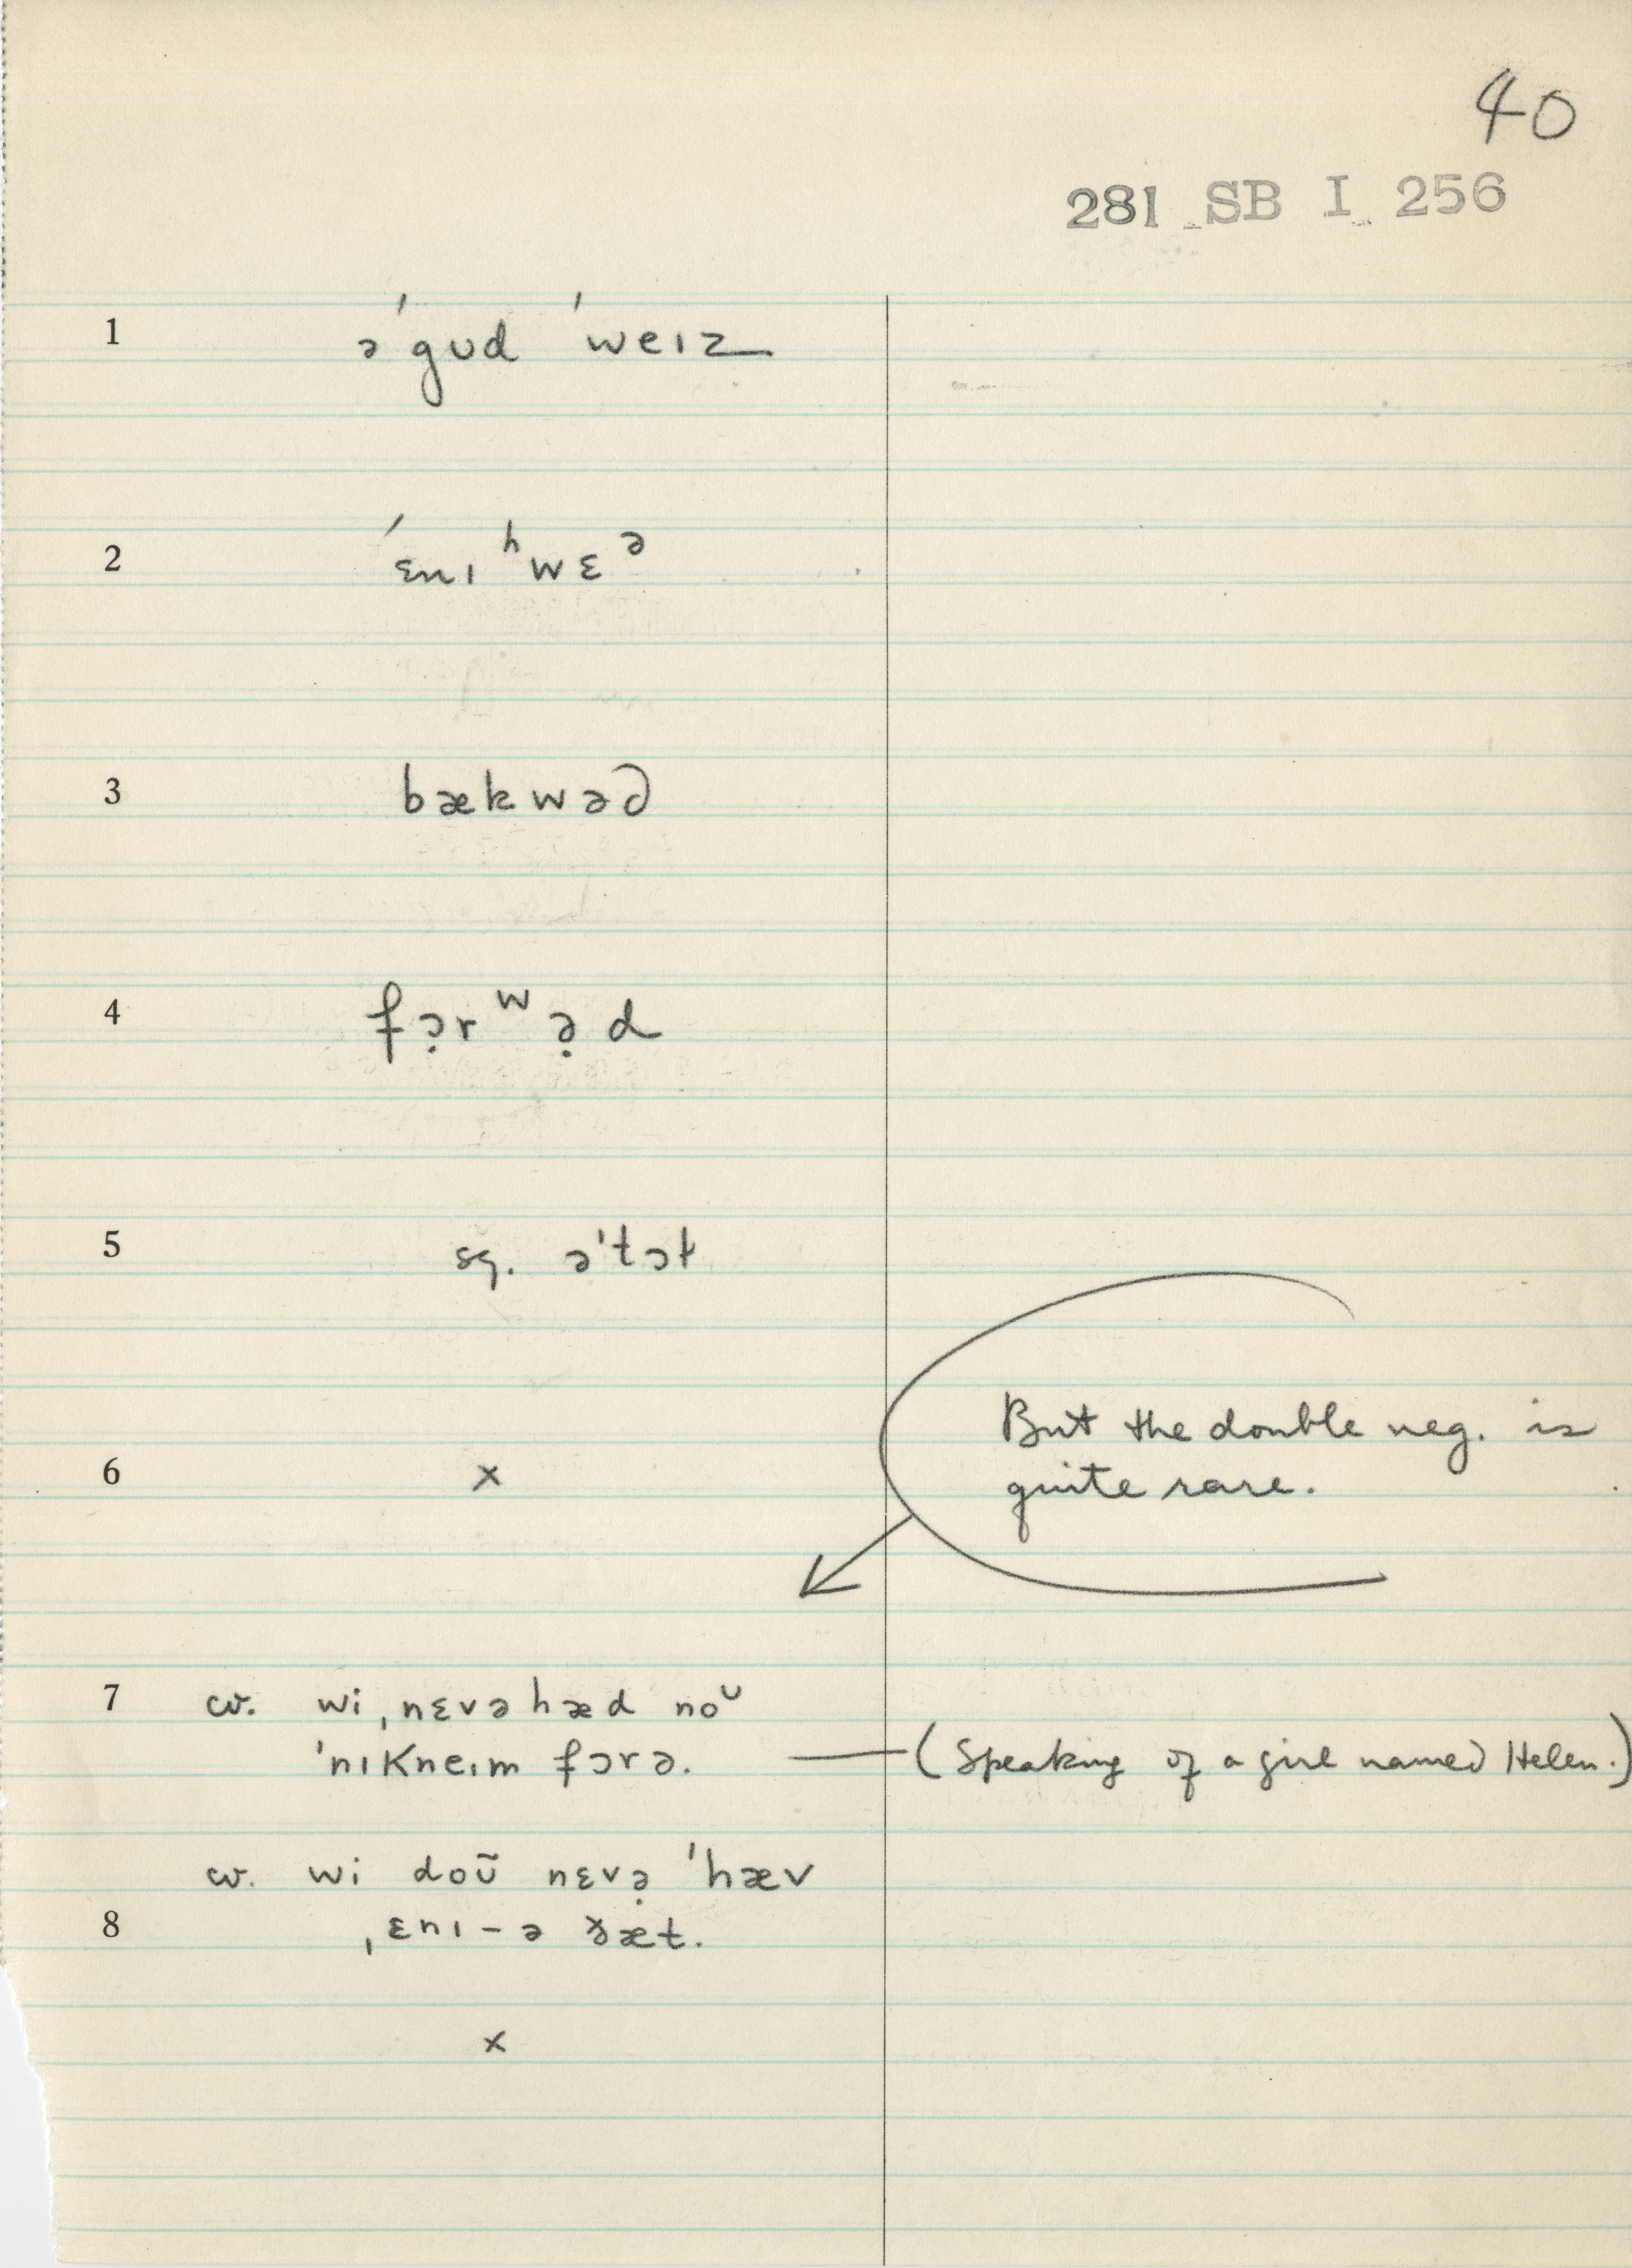 40
281 SB I 256
1 ə ˈgʊd ˈweɪz
2 ˈɛnɪ ʰwɛᵊ
3 bækwəd
4 fɔ̣rʷə̣d
5 sq. əˈtɔt
But the double neg. is
6 × quite rare.
7 cv. wi ˌnɛvə hæd noᶷ
ˈnɪkneɪm fɔrə. — (Speaking of a girl named Helen.)
cv. wi doʊ̃ nɛvə̣ ˈhæv
8 ˌɛnɪ – ə ðæt.
×